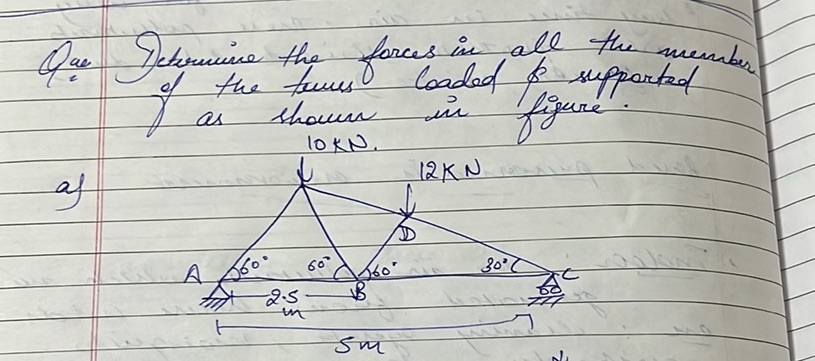 Que Determine the forces in all the member
of the truss loaded & supported
as shown in figure.
10KN.
a) 12KN
D
A 60° 60° 60° 30° C
B
2.5
m
5m